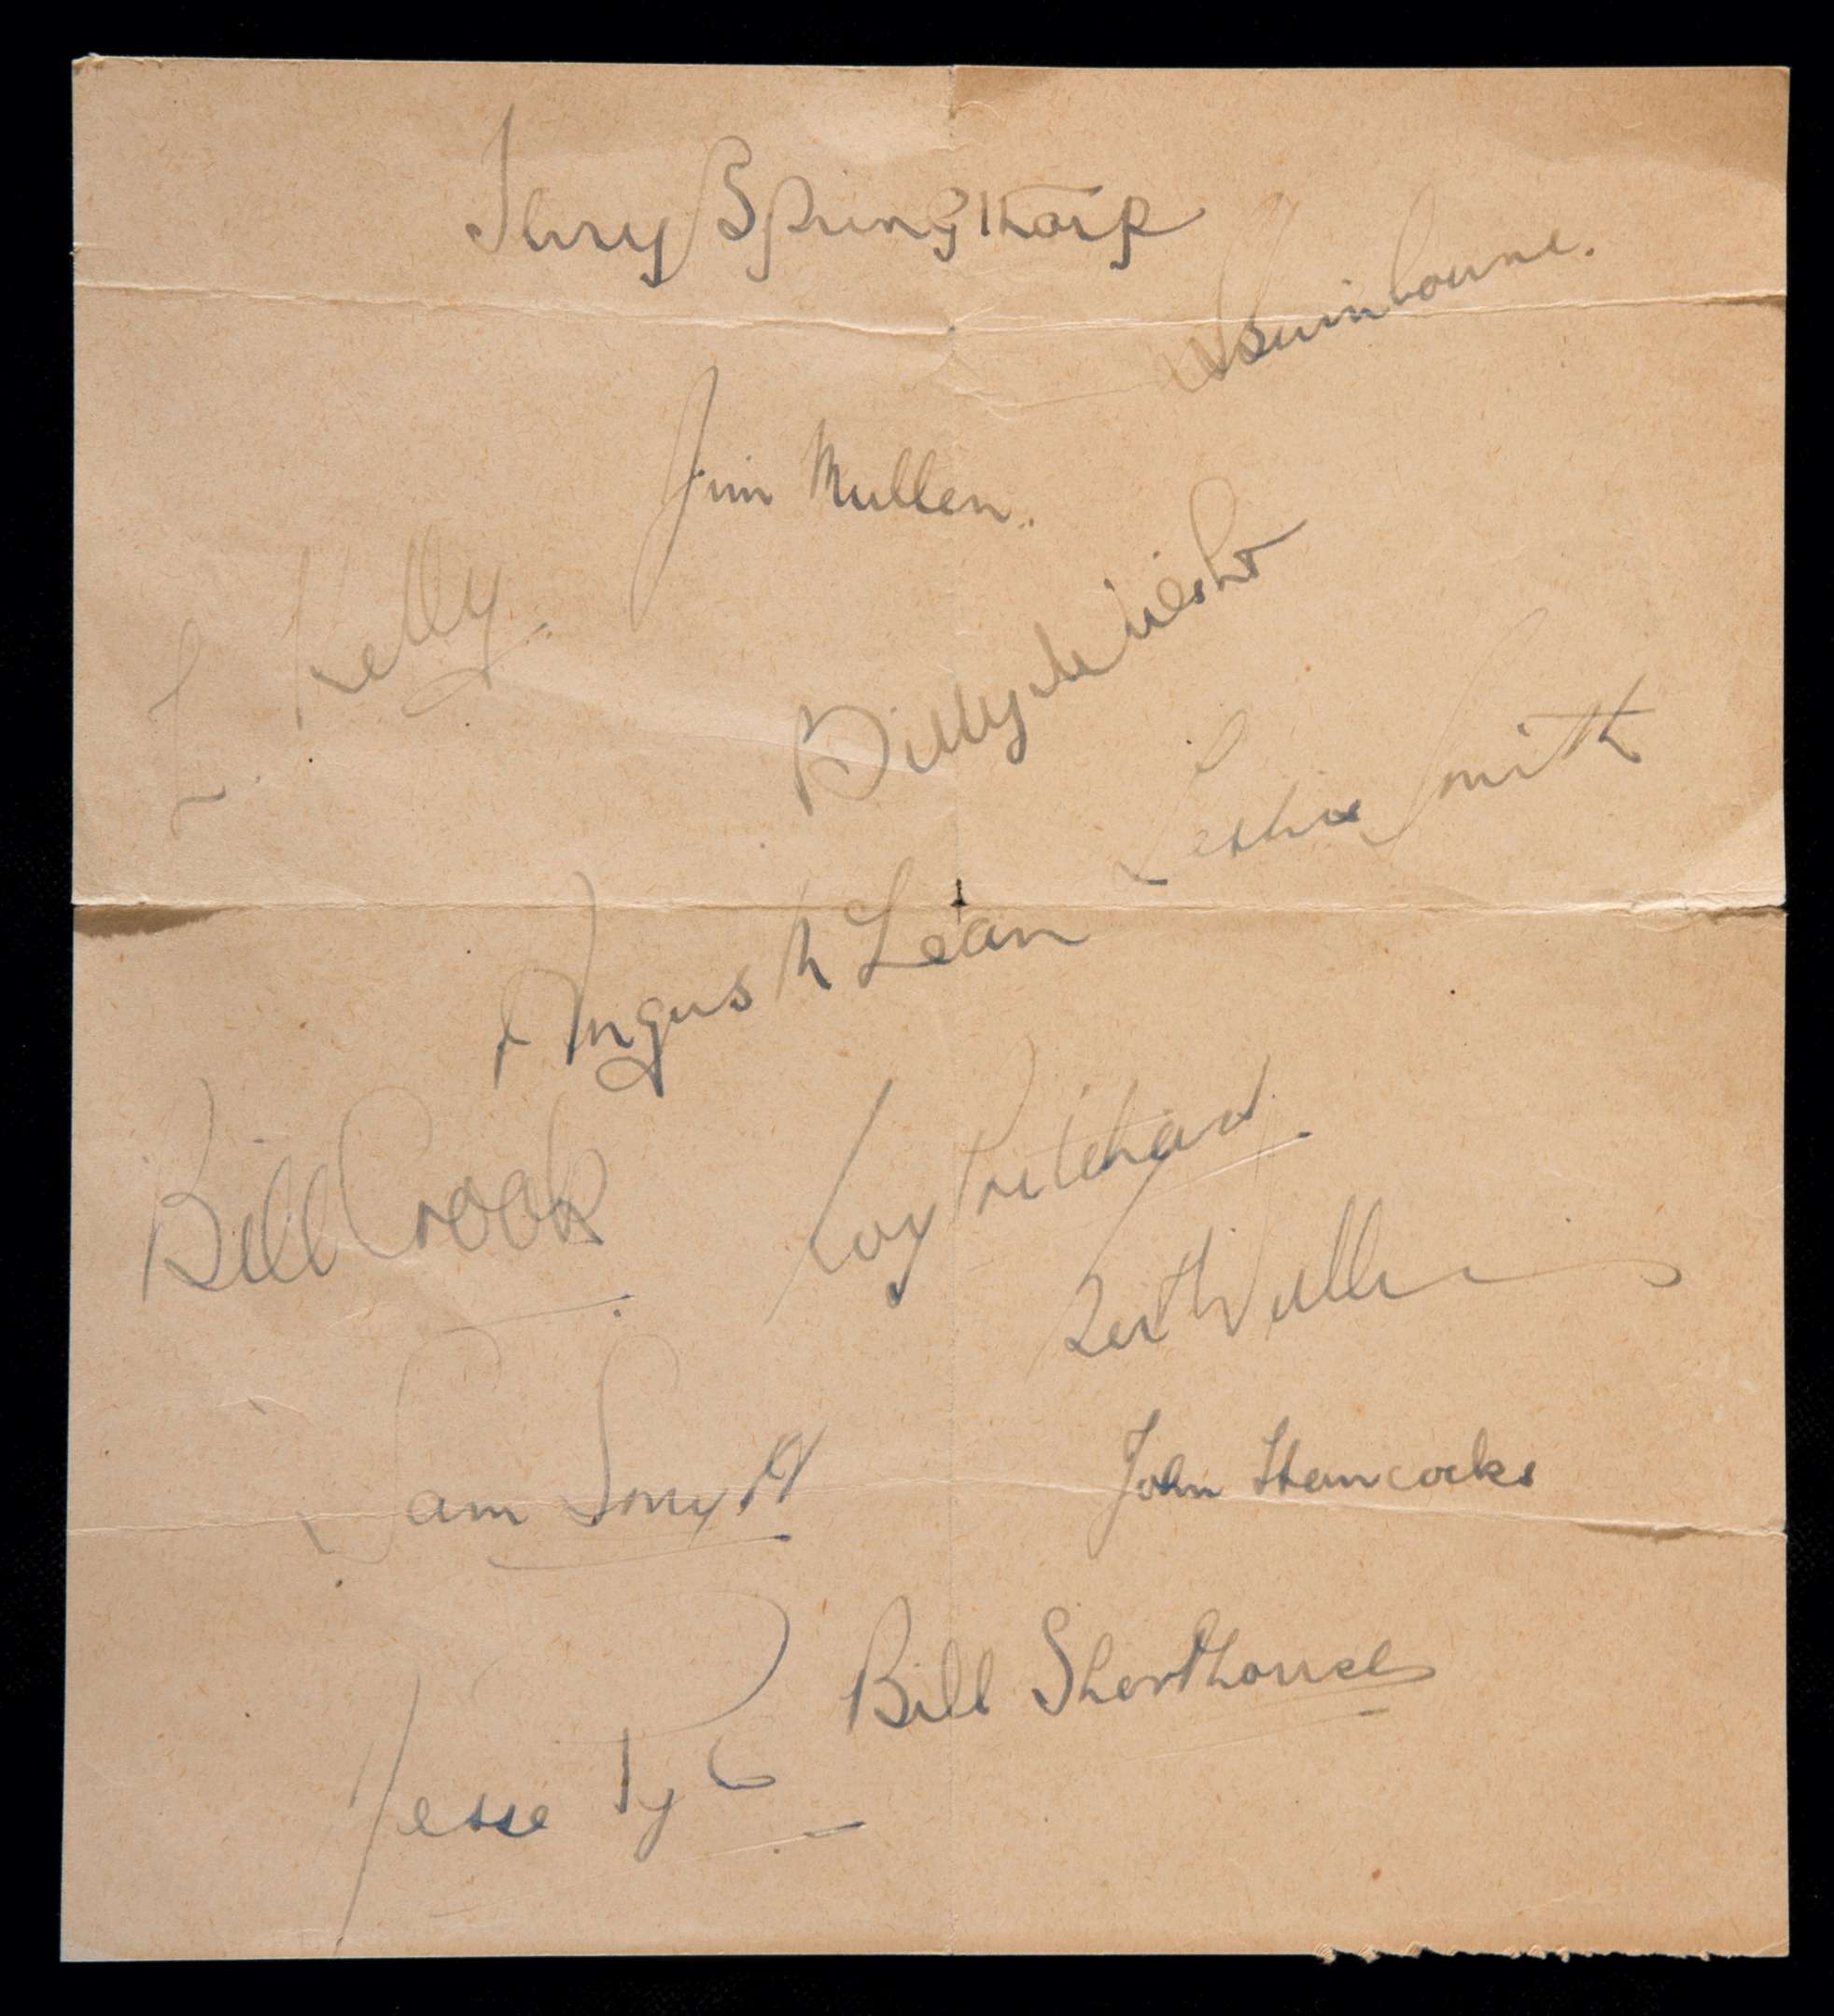 Terry Springthorp
Swinbourne.
Jim Mullen.
L. Kelly.
Billy Wright
Leslie Smith
Angus McLean
Roy Pritchard
Bill Crook
Bert Williams
Sam Smyth
John Hancocks
Bill Shorthouse
Jesse Pye